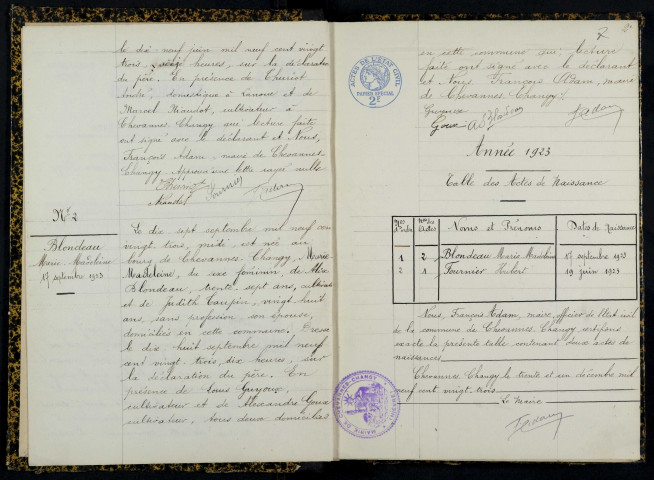 le dix neuf juin mil neuf cent vingt
trois, heures, sur la déclaration
du père. En présence de Theuriot
André, domestique à et de
Marcel Niaudot, cultivateur à
Chevannes-Changy qui lecture faite
ont signé avec le déclarant et Nous,
François Adam, maire de Chevannes-
Changy. Approuvé une lettre rayée nulle
Niaudot Fournier FAdam
N° 2
Blondeau
Marie-Madeleine
17 septembre 1923
Le dix sept septembre mil neuf cent
vingt trois, midi est née au
bourg de Chevannes-Changy, Marie
Madeleine, du sexe féminin, de
Blondeau, trente sept ans, cultivateur
et de Judith Taupin, vingt huit
ans, sans profession, son épouse,
domiciliés en cette commune. Dressé
le dix huit septembre mil neuf
cent vingt-trois, dix heures, sur
la déclaration du père. En
présence de Louis
cultivateur et de Alexandre Goux
cultivateur, tous deux domiciliés
ACTES DE L'ETAT CIVIL
PAPIER SPECIAL
2F
2
en cette commune qui lecture
faite ont signé avec le déclarant
et Nous François Adam, maire
de Chevannes-Changy
Goux FAdam
Année 1923
Table des Actes de Naissance
Nos des Actes Noms et Prénoms Dates de Naissance
1 2 Blondeau Marie Madeleine 17 septembre 1923
2 1 Fournier 19 juin 1923
Nous, François Adam, maire, officier de l'état civil
de la commune de Chevannes-Changy certifions
exacte la présente table contenant deux actes de
naissances
Chevannes-Changy le trente et un décembre mil
neuf cent vingt trois
Le Maire
FAdam